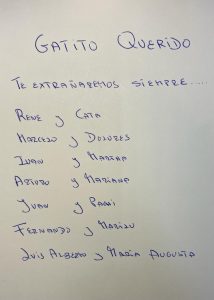 GATITO QUERIDO
TE EXTRAÑAREMOS SIEMPRE.....
RENE y CATA
MARCELO y DOLORES
JUAN y MARÍA
ARTURO y MARIANA
JUAN y PAMI
FERNANDO y MARILU
LUIS ALBERTO y MARÍA AUGUSTA